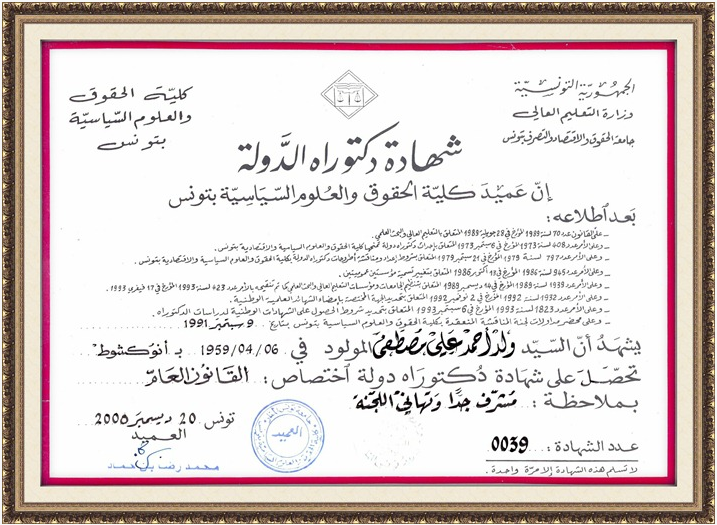 الجمهورية التونسية
وزارة التعليم العالي
جامعة الحقوق والاقتصاد والتصرف بتونس
كلية الحقوق
والعلوم السياسية
بتونس
شهادة دكتوراه الدولة
إنّ عميد كلية الحقوق والعلوم السياسية بتونس
بعد اطلاعه:
ـ على القانون عدد 70 لسنة 1989 المؤرخ في 28 جويلية 1989 المتعلق بالتعليم العالي والبحث العلمي.
ـ وعلى الأمر عدد 408 لسنة 1973 المؤرخ في 6 سبتمبر 1973 المتعلق بإحداث دكتوراه دولة تمنحها كلية الحقوق والعلوم السياسية والاقتصادية بتونس.
ـ وعلى الأمر عدد 797 لسنة 1979 المؤرخ في 21 سبتمبر 1979 المتعلق بشروط إعداد ومناقشة أطروحات دكتوراه الدولة بكلية الحقوق والعلوم السياسية والاقتصادية بتونس.
ـ وعلى الأمر عدد 945 لسنة 1986 المؤرخ في 11 أكتوبر 1986 المتعلق بتغيير تسمية مؤسستين عموميتين.
ـ وعلى الأمر عدد 1939 لسنة 1989 المؤرخ في 14 ديسمبر 1989 المتعلق بتنظيم الجامعات ومؤسسات التعليم العالي والبحث العلمي كما تم تنقيحه بالأمر عدد 423 لسنة 1993 المؤرخ في 17 فيفري 1993.
ـ وعلى الأمر عدد 1932 لسنة 1992 المؤرخ في 2 نوفمبر 1992 المتعلق بتحديد الجهة المختصة بإمضاء الشهائد العلمية الوطنية.
ـ وعلى الأمر عدد 1823 لسنة 1993 المؤرخ في 6 سبتمبر 1993 المتعلق بتحديد شروط الحصول على الشهادات الوطنية لدراسات الدكتوراه.
ـ وعلى محضر مداولات لجنة المناقشة المنعقدة بكلية الحقوق والعلوم السياسية بتونس بتاريخ 9 سبتمبر 1991
يشهد أنّ السيّد ولد أحمد علي مصطفى المولود في 1959/04/06 بـ أنوكشوط
تحصّل على شهادة دكتوراه دولة اختصاص: القانون العام
بملاحظة: مشرّف جدّا وتهاني اللجنة
تونس 20 ديسمبر 2000
العميد
محمد رضا بن حماد
العميد
عدد الشهادة: 0039
لا تسلم هذه الشهادة إلا مرة واحدة.